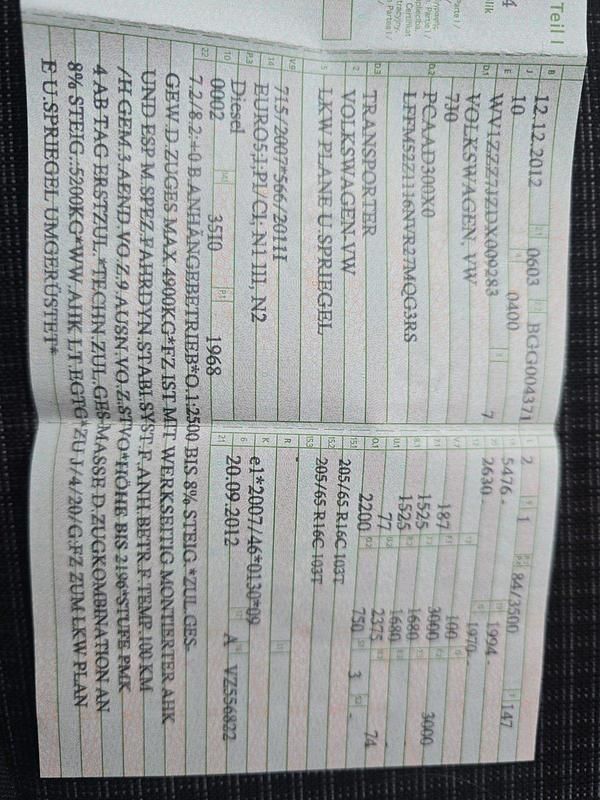 Teil I
B 12.12.2012 2.1 0603 2.2 BGG004371
J 10 4 0400
E WV1ZZZ7JZDX009283 3 7
D.1 VOLKSWAGEN, VW
730
D.2 PCAAD300X0
LFFM52Z1116NVR27MQG3RS
D.3 TRANSPORTER
2 VOLKSWAGEN-VW
5 LKW PLANE U.SPRIEGEL
V.9 715/2007*566/2011I
14 EURO5;I;PI/CI, N1 III, N2
P.3 Diesel
10 0002 14.1 3510 P.1 1968
22 7.2/8.2:+0 B.ANHÄNGEBETRIEB*O.1:2500 BIS 8% STEIG *ZUL.GES.
GEW.D.ZUGES MAX.4900KG*FZ.IST MIT WERKSEITIG MONTIERTER AHK
UND ESP M.SPEZ.FAHRDYN.STABI.SYST.F.ANH.BETR.F.TEMP.100 KM
/H GEM.3.AEND.VO.Z.9.AUSN.VO.Z.STVO*HÖHE BIS 2196*STUFE PMK
4 AB TAG ERSTZUL.*TECHN.ZUL.GES.MASSE D.ZUGKOMBINATION AN
8% STEIG.:5200KG*WW.AHK LT.EGTG*ZU J/4/20/G:FZ ZUM LKW PLAN
E U.SPRIEGEL UMGERÜSTET*
L 2 9 1 84/3500
18 5476- 19 1994- 147
20 2630- 1970-
V.7 187 100
7.1 1525 3000 3000
8.1 1525 1680
U.1 77 1680
O.1 2200 O.2 2375 74
15.1 205/65 R16C 103T 750 3 -
15.2 205/65 R16C 103T
15.3 -
R
K e1*2007/46*0130*09
6 20.09.2012 17 A 16 VZ556822
21